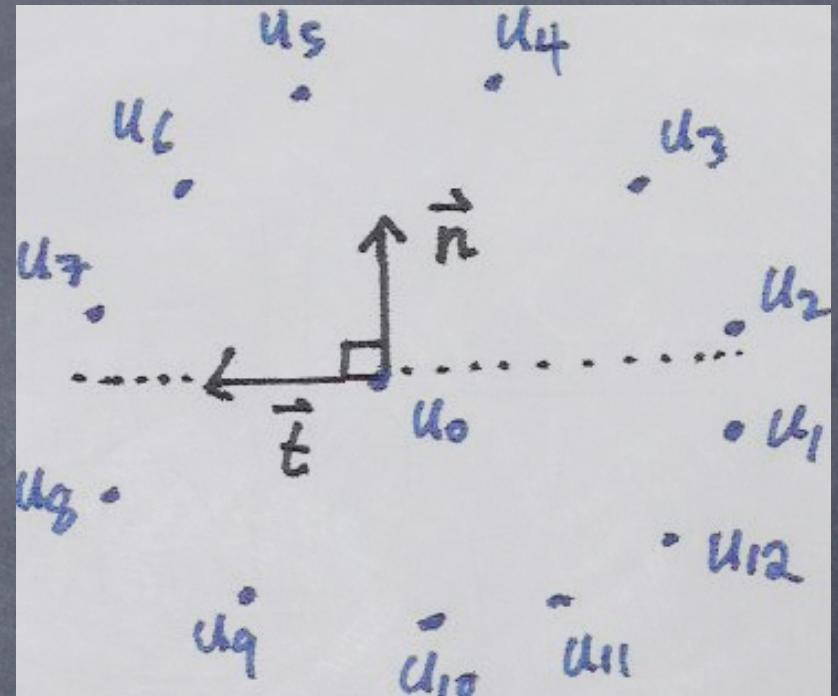 u5 u4
u6 u3
n
u7 u2
t u0 u1
u8 u12
u9 u11
u10